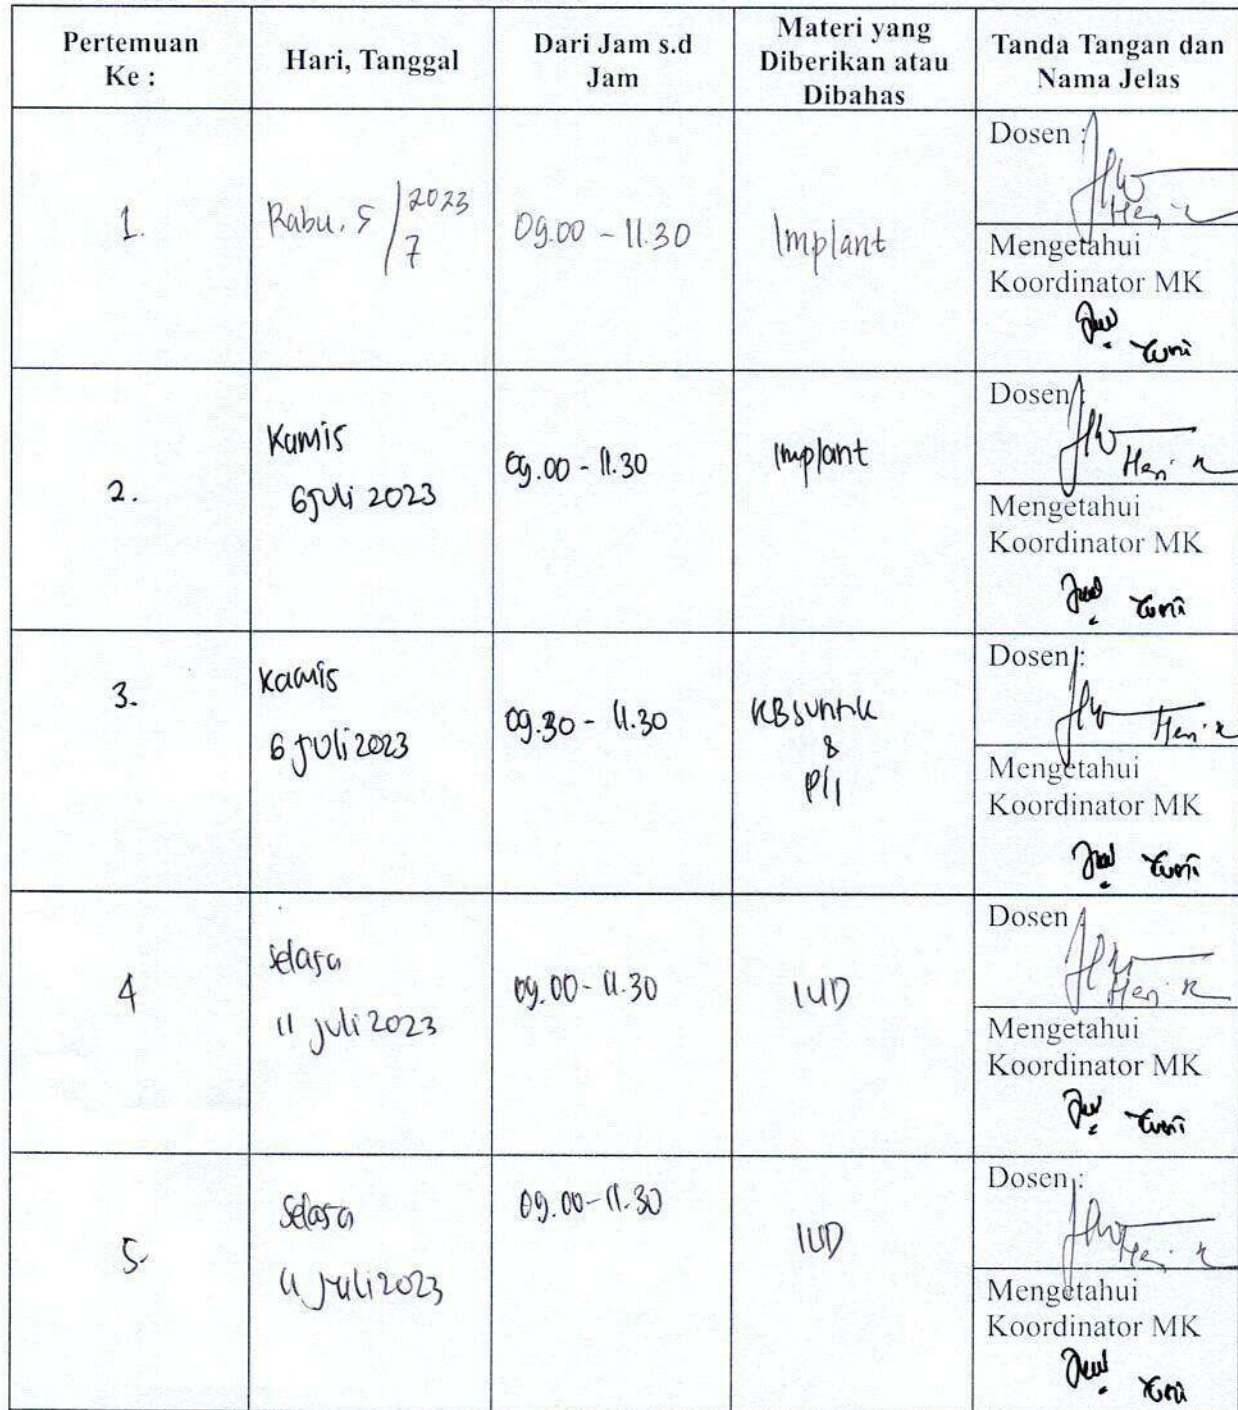 Pertemuan
Ke :
Hari, Tanggal
Dari Jam s.d
Jam
Materi yang
Diberikan atau
Dibahas
Tanda Tangan dan
Nama Jelas
1.
Rabu, 5/7 2023
09.00 - 11.30
Implant
Dosen :
Heni R
Mengetahui
Koordinator MK
Yuni
2.
Kamis
6 juli 2023
09.00 - 11.30
Implant
Dosen :
Heni R
Mengetahui
Koordinator MK
Yuni
3.
Kamis
6 juli 2023
09.30 - 11.30
KB suntik
&
pil
Dosen :
Heni R
Mengetahui
Koordinator MK
Yuni
4
Selasa
11 juli 2023
09.00 - 11.30
IUD
Dosen :
Heni R
Mengetahui
Koordinator MK
Yuni
5.
Selasa
11 juli 2023
09.00 - 11.30
IUD
Dosen :
Heni R
Mengetahui
Koordinator MK
Yuni